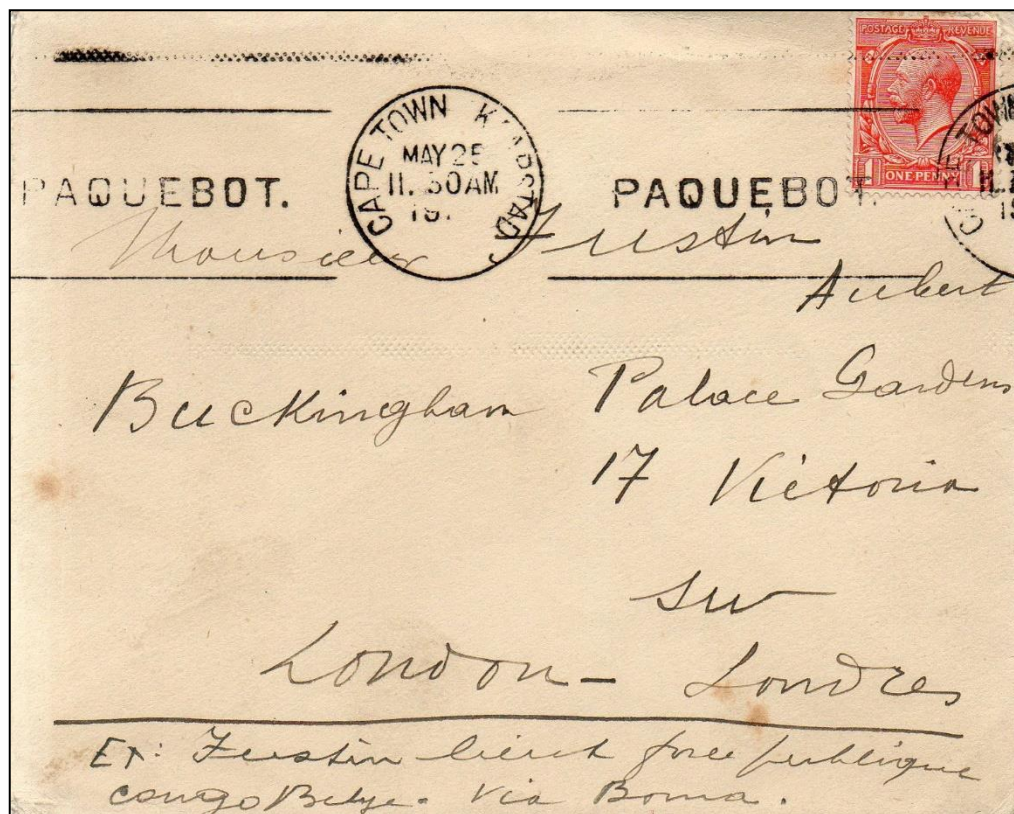 POSTAGE REVENUE
ONE PENNY
CAPE TOWN KAAPSTAD
MAY 25
11.30AM
191
PAQUEBOT. PAQUEBOT.
Monsieur Fustin
Aubert
Buckingham Palace Gardens
17 Victoria
SW
London - Londres
Ex: Fustin lieut force publique
congo Belge. Via Boma.